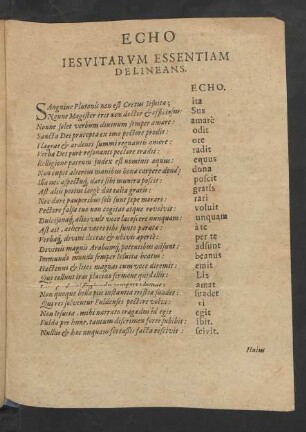 ECHO
IESVITARVM ESSENTIAM
DELINEANS.
ECHO.
SAnguine Plutonis non est Cretus Iesuita; ita
Nonne Magister erit non doctor & officiosus: Sus
Nonne solet verbum divinum semper amare: amarè
Sancta Dei præcepta ex imo pectore prodit: odit
Flagrat & ardenti summi regnantis amore: ore
Verba Dei purè resonanti pectore tradit: radit
Religione patrum judex est nominis æquus: equus
Non cupit alterius manibus bona carpere dona; dona
Illa nec aspectuq; dare sibi munera poscit: poscit
Ast aliis potius largè dat talia gratis: gratis
Nec dare pauperibus soli sunt sepe morari: rari
Pectore falsa tuo non cogitat atque revolvit: voluit
Dulcisonaq; aliis unde voce lacessere nunquam: unquam
Ast ait, ætheria vates tibi sancta parata: àte
Verbaq; divini doceas & ubivis apertè: per te
Davitiis magnis Arabumq; potentibus adsunt: adsunt
Immundo mundo semper Iesuita beatus: beatus
Hactenus & lites magnas cum voce diremit: emit
Quis tollunt iras placido sermone quid lites: Lis
amat
Non quoque bella piis instantia tristia suadet: suadet
Quis res solvuntur Fuldenses pectore vultu: vi
Non Iesuita mihi narrato tragœdus id egit egit
Fulda per hunc, tantum discrimen forte subibit: ibit.
Nullus & hæc unquam fortassis facta rescivit: scivit.
Huius